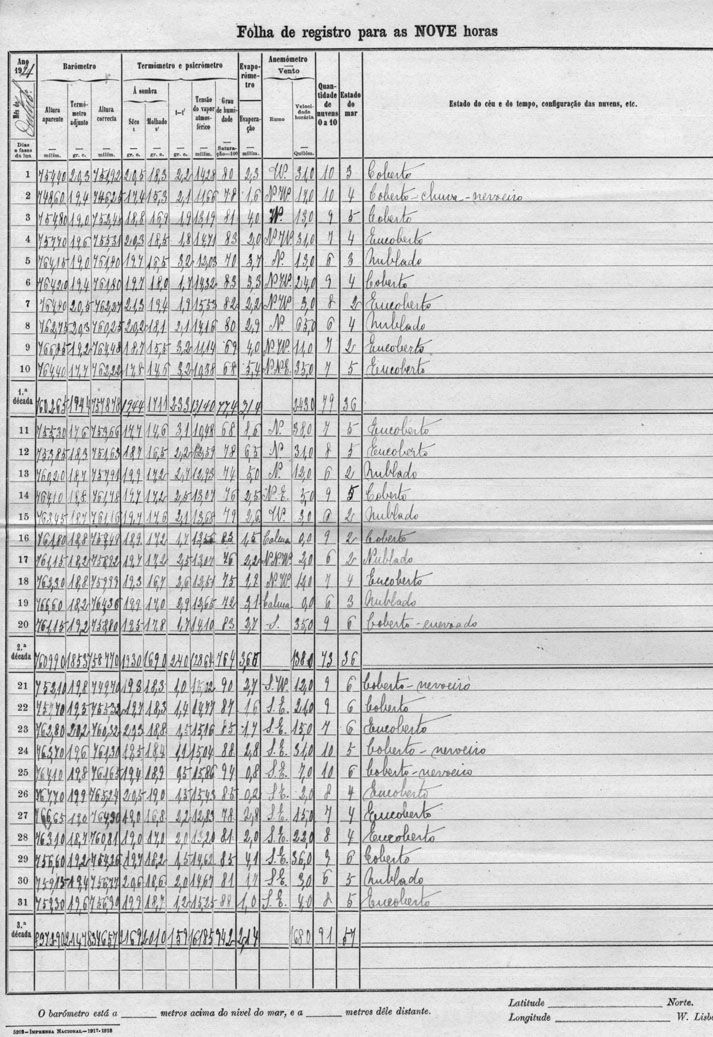 Fôlha de registro para as NOVE horas
Ano 1921
Mês de
Dias e fases da lua
Barómetro
Termómetro e psicrómetro
Evaporómetro
Anemómetro
Vento
Quantidade de nuvens 0 a 10
Estado do mar
Estado do céu e do tempo, configuração das nuvens, etc.
Altura aparente
Termómetro adjunto
Altura correcta
Á sombra
Sêco t
Molhado t'
t—t'
Tensão do vapor atmosférico
Grau de humidade
Saturação=100
Evaporação
Rumo
Velocidade horária
milím. gr. c. milím. gr. c. gr. c. gr. c. milím. milím. Quilóm.
1 754,90 20,3 751,92 20,5 18,3 2,2 14,28 80 2,3 W. 31,0 10 3 Coberto
2 748,60 19,4 746,25 17,4 15,3 2,1 11,66 78 1,6 N.W. 17,0 10 4 Coberto - chuva - nevoeiro
3 754,80 19,0 752,46 18,8 16,9 1,9 13,19 81 4,0 W. 13,0 9 5 Coberto
4 757,70 19,6 755,31 20,3 18,5 1,8 14,71 83 2,0 N.W. 31,0 7 4 Encoberto
5 764,15 19,0 761,80 19,7 16,5 3,2 12,03 70 3,7 N. 13,0 6 3 Nublado
6 764,20 19,4 761,80 19,7 18,0 1,7 14,32 83 3,3 N.W. 24,0 9 4 Coberto
7 764,40 20,5 762,07 21,3 19,4 1,9 15,53 82 2,2 N.W. 3,0 8 2 Encoberto
8 762,75 20,3 760,25 20,2 18,1 2,1 14,16 80 2,9 N. 65,0 6 4 Nublado
9 766,85 19,2 764,48 18,7 15,5 3,2 11,14 69 4,0 N.W. 11,0 7 2 Encoberto
10 764,40 17,7 762,22 17,8 14,6 3,2 10,38 68 5,4 N.N.E. 35,0 7 5 Encoberto
1.ª década 194,4 171,1 23,3 131,40 77,4 31,4 243,0 79 36
11 755,30 17,6 753,66 17,7 14,6 3,1 10,48 68 1,6 N. 38,0 7 5 Encoberto
12 753,85 18,3 751,63 18,7 16,5 2,2 12,59 78 6,5 N. 31,0 8 5 Encoberto
13 760,20 18,7 757,91 19,9 17,2 2,7 12,93 74 5,0 N. 12,0 6 2 Nublado
14 764,10 18,8 761,78 19,7 17,2 2,5 13,07 76 2,5 N.E. 5,0 9 5 Coberto
15 763,45 18,7 761,16 19,7 17,6 2,1 13,68 79 2,6 W. 3,0 6 2 Nublado
16 761,80 18,8 759,49 18,9 17,2 1,7 13,56 83 1,5 Calma 0,0 9 2 Coberto
17 761,15 18,2 758,92 19,7 17,2 2,5 13,07 76 2,2 N.N.W. 2,0 6 2 Nublado
18 762,30 18,8 759,99 19,3 16,7 2,6 12,51 75 1,2 N.W. 14,0 7 4 Encoberto
19 766,60 18,2 764,36 19,9 17,0 2,9 12,65 72 3,1 Calma 0,0 6 3 Nublado
20 761,15 19,2 758,80 19,5 17,8 1,7 14,10 83 3,7 S. 35,0 9 6 Coberto - enevoado
2.ª década 185,3 193,0 169,0 24,0 128,64 76,4 73 36
21 752,10 19,8 749,70 19,3 18,3 1,0 15,02 90 2,7 S.W. 12,0 9 6 Coberto - nevoeiro
22 757,70 19,5 755,32 19,7 18,3 1,4 14,77 87 1,6 S.E. 21,0 9 6 Coberto
23 762,80 20,2 760,32 20,3 18,8 1,5 15,16 85 1,7 S.E. 15,0 7 6 Encoberto
24 763,70 19,6 761,30 19,5 18,4 1,1 15,04 88 2,8 S.E. 31,0 10 5 Coberto - nevoeiro
25 764,10 19,8 761,65 19,4 18,9 0,5 15,86 94 0,8 S.E. 7,0 10 6 Coberto - nevoeiro
26 767,70 19,9 765,24 20,5 19,0 1,5 15,43 85 0,2 S.E. 2,0 8 4 Encoberto
27 766,65 19,0 764,30 19,0 16,8 2,2 12,83 78 2,8 S.E. 15,0 7 4 Encoberto
28 763,10 18,7 760,81 19,0 17,0 2,0 13,20 81 2,0 S.E. 22,0 8 4 Encoberto
29 756,60 19,2 754,26 19,7 18,2 1,5 14,62 85 4,1 S.E. 36,0 9 6 Coberto
30 759,15 19,4 756,77 20,6 18,6 2,0 14,67 81 1,7 S.E. 3,0 6 5 Nublado
31 759,30 19,6 756,90 19,9 18,7 1,2 15,25 88 1,0 S.E. 4,0 8 5 Encoberto
3.ª década 214,7 201,0 15,9 161,85 942 21,4 168,0 91 57
O barómetro está a ______ metros acima do nível do mar, e a ______ metros dêle distante.
Latitude ______ Norte.
Longitude ______ W. Lisb
5928—IMPRENSA NACIONAL—1917-1918